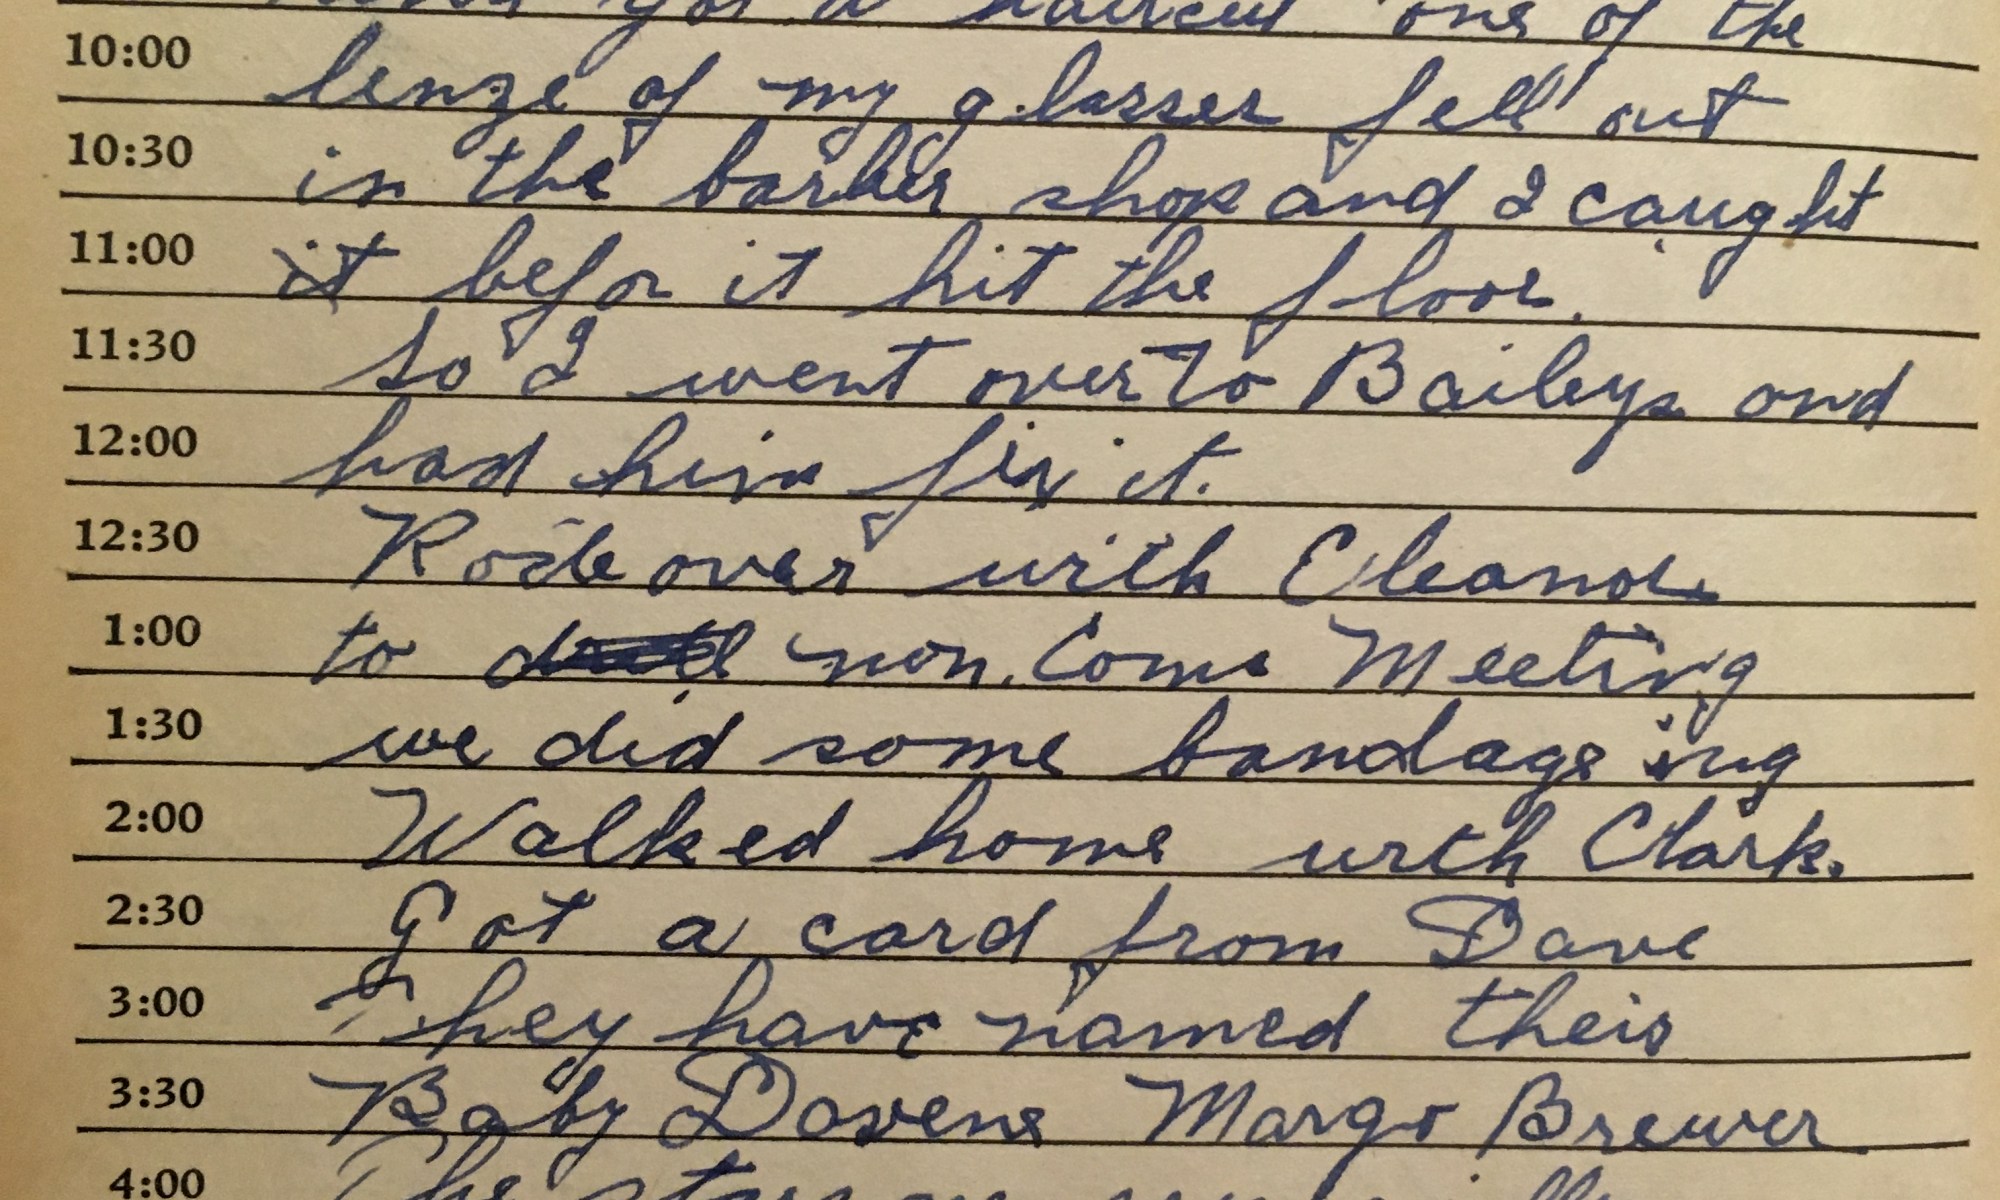 got a haircut one of the
10:00 lenze of my glasses fell out
10:30 in the barber shop and I caught
11:00 it befor it hit the floor.
11:30 So I went over to Baileys and
12:00 had him fix it.
12:30 Rode over with Eleanor
1:00 to non. Com Meeting
1:30 we did some bandageing
2:00 Walked home with Clark.
2:30 Got a card from Dave
3:00 They have named their
3:30 Baby Davene Margo Brewer
4:00 The